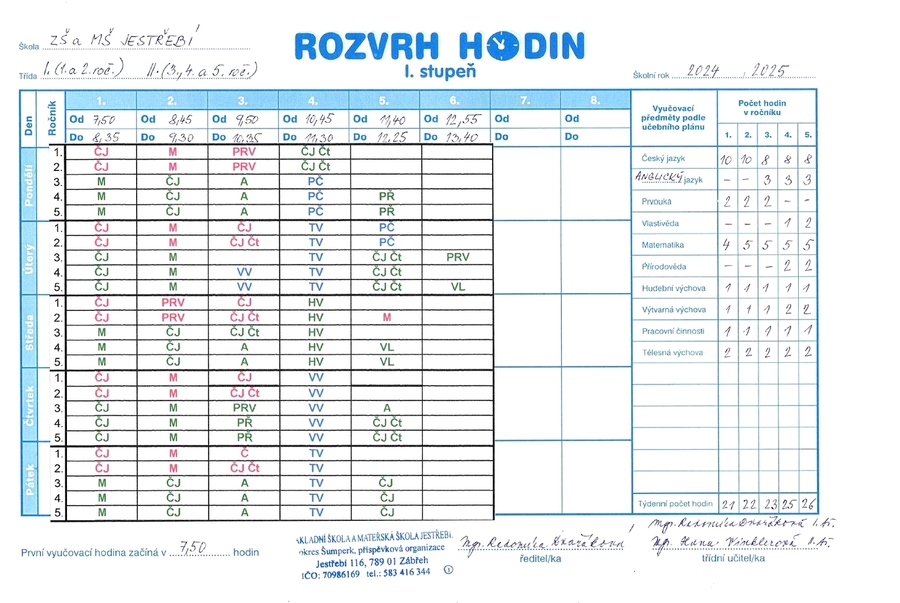 Škola ZŠ a MŠ JESTŘEBÍ
ROZVRH HODIN
I. stupeň
Třída I. (1. a 2. roč.) II. (3., 4. a 5. roč.)
Školní rok 2024 , 2025
Den Ročník 1. 2. 3. 4. 5. 6. 7. 8.
Od 7,50 Od 8,45 Od 9,50 Od 10,45 Od 11,40 Od 12,55 Od Od
Do 8,35 Do 9,30 Do 10,35 Do 11,30 Do 12,25 Do 13,40 Do Do
Pondělí
1. ČJ M PRV ČJ Čt
2. ČJ M PRV ČJ Čt
3. M ČJ A PČ
4. M ČJ A PČ PŘ
5. M ČJ A PČ PŘ
Úterý
1. ČJ M ČJ TV PČ
2. ČJ M ČJ Čt TV PČ
3. ČJ M TV ČJ Čt PRV
4. ČJ M VV TV ČJ Čt
5. ČJ M VV TV ČJ Čt VL
Středa
1. ČJ PRV ČJ HV
2. ČJ PRV ČJ Čt HV M
3. M ČJ ČJ Čt HV
4. M ČJ A HV VL
5. M ČJ A HV VL
Čtvrtek
1. ČJ M ČJ VV
2. ČJ M ČJ Čt VV
3. ČJ M PRV VV A
4. ČJ M PŘ VV ČJ Čt
5. ČJ M PŘ VV ČJ Čt
Pátek
1. ČJ M Č TV
2. ČJ M ČJ Čt TV
3. M ČJ A TV ČJ
4. M ČJ A TV ČJ
5. M ČJ A TV ČJ
Vyučovací předměty podle učebního plánu
Počet hodin v ročníku
1. 2. 3. 4. 5.
Český jazyk 10 10 8 8 8
ANGLICKÝ jazyk - - 3 3 3
Prvouka 2 2 2 - -
Vlastivěda - - - 1 2
Matematika 4 5 5 5 5
Přírodověda - - - 2 2
Hudební výchova 1 1 1 1 1
Výtvarná výchova 1 1 1 2 2
Pracovní činnosti 1 1 1 1 1
Tělesná výchova 2 2 2 2 2
Týdenní počet hodin 21 22 23 25 26
První vyučovací hodina začíná v 7,50 hodin
ZÁKLADNÍ ŠKOLA A MATEŘSKÁ ŠKOLA JESTŘEBÍ,
okres Šumperk, příspěvková organizace
Jestřebí 116, 789 01 Zábřeh
IČO: 70986169 tel.: 583 416 344
Mgr. Radomíra Dvořáková
ředitel/ka
Mgr. Radomíra Dvořáková
Mgr. Hana Winklerová
třídní učitel/ka